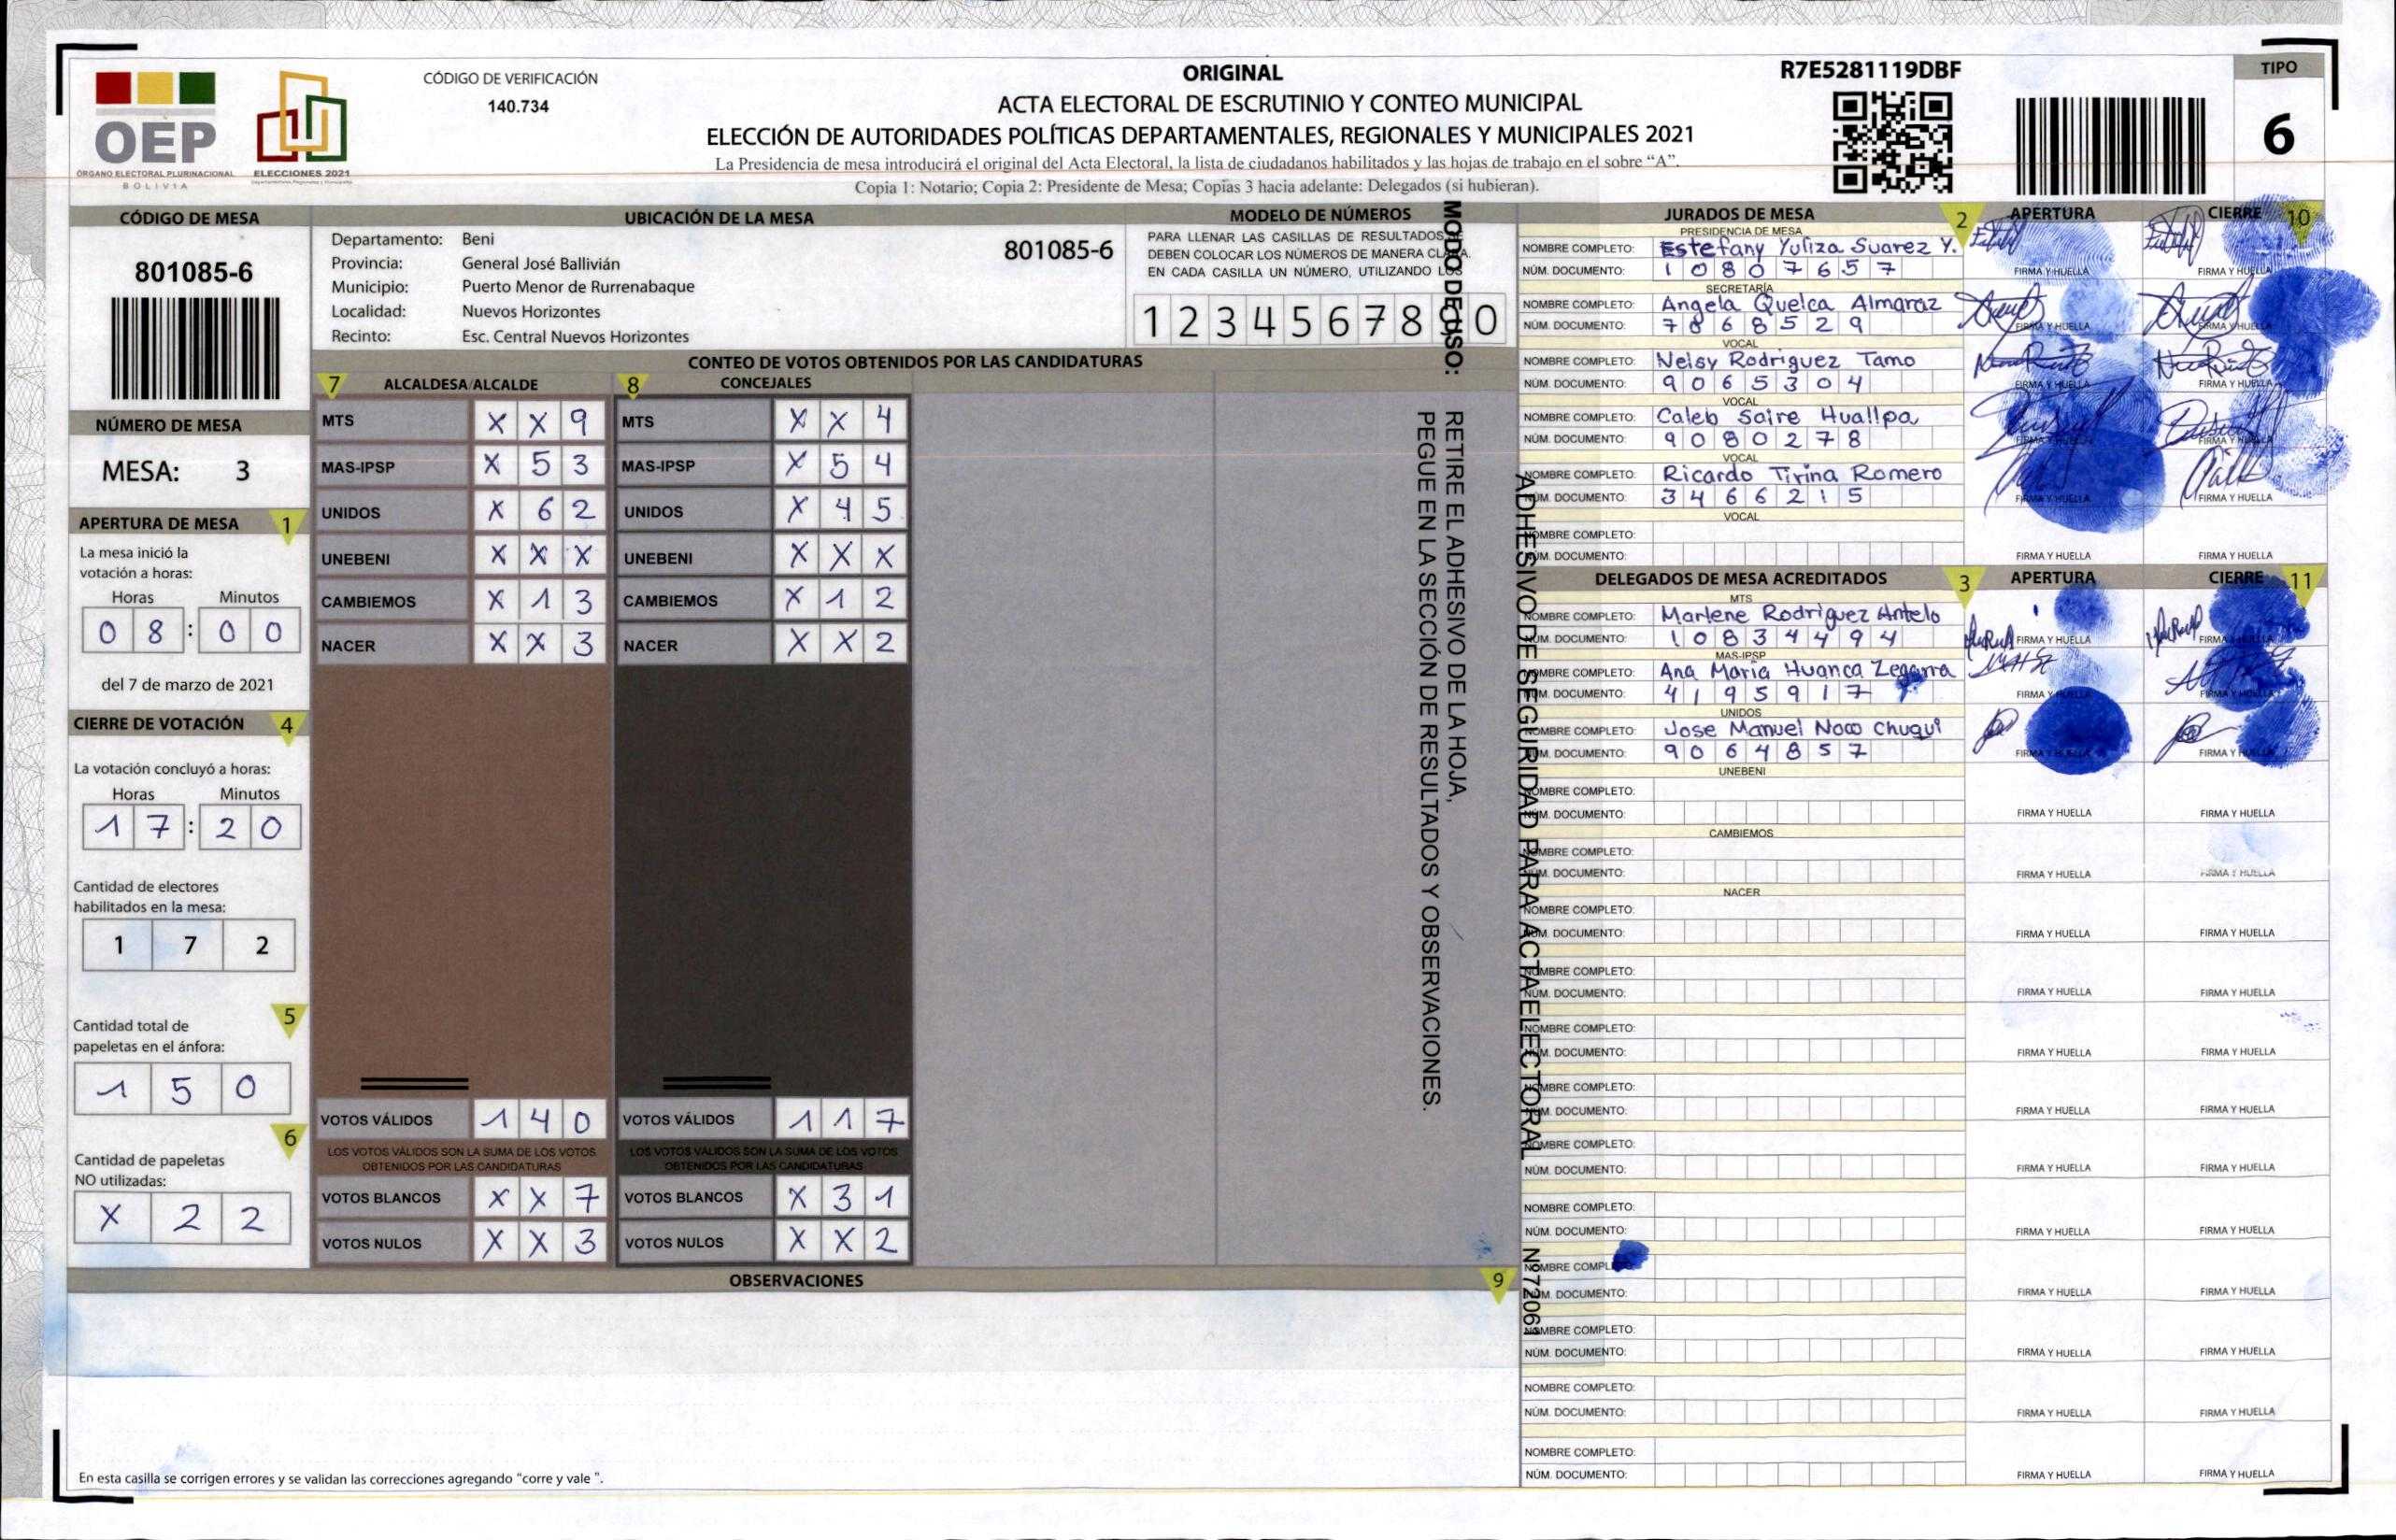 OEP
ÓRGANO ELECTORAL PLURINACIONAL
BOLIVIA
ELECCIONES 2021
CÓDIGO DE VERIFICACIÓN
140.734
ORIGINAL
ACTA ELECTORAL DE ESCRUTINIO Y CONTEO MUNICIPAL
ELECCIÓN DE AUTORIDADES POLÍTICAS DEPARTAMENTALES, REGIONALES Y MUNICIPALES 2021
La Presidencia de mesa introducirá el original del Acta Electoral, la lista de ciudadanos habilitados y las hojas de trabajo en el sobre “A”.
Copia 1: Notario; Copia 2: Presidente de Mesa; Copias 3 hacia adelante: Delegados (si hubieran).
R7E5281119DBF
TIPO
6
CÓDIGO DE MESA
801085-6
NÚMERO DE MESA
MESA: 3
APERTURA DE MESA 1
La mesa inició la
votación a horas:
Horas Minutos
0 8 : 0 0
del 7 de marzo de 2021
CIERRE DE VOTACIÓN 4
La votación concluyó a horas:
Horas Minutos
1 7 : 2 0
Cantidad de electores
habilitados en la mesa:
1 7 2
5
Cantidad total de
papeletas en el ánfora:
1 5 0
6
Cantidad de papeletas
NO utilizadas:
X 2 2
UBICACIÓN DE LA MESA
Departamento: Beni
Provincia: General José Ballivián
Municipio: Puerto Menor de Rurrenabaque
Localidad: Nuevos Horizontes
Recinto: Esc. Central Nuevos Horizontes
801085-6
MODELO DE NÚMEROS
PARA LLENAR LAS CASILLAS DE RESULTADOS
DEBEN COLOCAR LOS NÚMEROS DE MANERA CLARA.
EN CADA CASILLA UN NÚMERO, UTILIZANDO LOS
1 2 3 4 5 6 7 8 9 0
CONTEO DE VOTOS OBTENIDOS POR LAS CANDIDATURAS
7 ALCALDESA/ALCALDE
MTS X X 9
MAS-IPSP X 5 3
UNIDOS X 6 2
UNEBENI X X X
CAMBIEMOS X 1 3
NACER X X 3
VOTOS VÁLIDOS 1 4 0
LOS VOTOS VÁLIDOS SON LA SUMA DE LOS VOTOS
OBTENIDOS POR LAS CANDIDATURAS
VOTOS BLANCOS X X 7
VOTOS NULOS X X 3
8 CONCEJALES
MTS X X 4
MAS-IPSP X 5 4
UNIDOS X 4 5
UNEBENI X X X
CAMBIEMOS X 1 2
NACER X X 2
VOTOS VÁLIDOS 1 1 7
LOS VOTOS VÁLIDOS SON LA SUMA DE LOS VOTOS
OBTENIDOS POR LAS CANDIDATURAS
VOTOS BLANCOS X 3 1
VOTOS NULOS X X 2
OBSERVACIONES 9
En esta casilla se corrigen errores y se validan las correcciones agregando “corre y vale ”.
MODO DE USO:
RETIRE EL ADHESIVO DE LA HOJA,
PEGUE EN LA SECCIÓN DE RESULTADOS Y OBSERVACIONES.
ADHESIVO DE SEGURIDAD PARA ACTA ELECTORAL Nº72061
JURADOS DE MESA 2 APERTURA CIERRE 10
PRESIDENCIA DE MESA
NOMBRE COMPLETO: Estefany Yuliza Suarez Y.
NÚM. DOCUMENTO: 1 0 8 0 7 6 5 7 FIRMA Y HUELLA FIRMA Y HUELLA
SECRETARÍA
NOMBRE COMPLETO: Angela Quelca Almaraz
NÚM. DOCUMENTO: 7 8 6 8 5 2 9 FIRMA Y HUELLA FIRMA Y HUELLA
VOCAL
NOMBRE COMPLETO: Neisy Rodriguez Tamo
NÚM. DOCUMENTO: 9 0 6 5 3 0 4 FIRMA Y HUELLA FIRMA Y HUELLA
VOCAL
NOMBRE COMPLETO: Caleb Saire Huallpa
NÚM. DOCUMENTO: 9 0 8 0 2 7 8 FIRMA Y HUELLA FIRMA Y HUELLA
VOCAL
NOMBRE COMPLETO: Ricardo Tirina Romero
NÚM. DOCUMENTO: 3 4 6 6 2 1 5 FIRMA Y HUELLA FIRMA Y HUELLA
VOCAL
NOMBRE COMPLETO:
NÚM. DOCUMENTO: FIRMA Y HUELLA FIRMA Y HUELLA
DELEGADOS DE MESA ACREDITADOS 3 APERTURA CIERRE 11
MTS
NOMBRE COMPLETO: Marlene Rodriguez Antelo
NÚM. DOCUMENTO: 1 0 8 3 4 4 9 4 FIRMA Y HUELLA FIRMA Y HUELLA
MAS-IPSP
NOMBRE COMPLETO: Ana Maria Huanca Zegarra
NÚM. DOCUMENTO: 4 1 9 5 9 1 7 FIRMA Y HUELLA FIRMA Y HUELLA
UNIDOS
NOMBRE COMPLETO: Jose Manuel Noco Chuqui
NÚM. DOCUMENTO: 9 0 6 4 8 5 7 FIRMA Y HUELLA FIRMA Y HUELLA
UNEBENI
NOMBRE COMPLETO:
NÚM. DOCUMENTO: FIRMA Y HUELLA FIRMA Y HUELLA
CAMBIEMOS
NOMBRE COMPLETO:
NÚM. DOCUMENTO: FIRMA Y HUELLA FIRMA Y HUELLA
NACER
NOMBRE COMPLETO:
NÚM. DOCUMENTO: FIRMA Y HUELLA FIRMA Y HUELLA
NOMBRE COMPLETO:
NÚM. DOCUMENTO: FIRMA Y HUELLA FIRMA Y HUELLA
NOMBRE COMPLETO:
NÚM. DOCUMENTO: FIRMA Y HUELLA FIRMA Y HUELLA
NOMBRE COMPLETO:
NÚM. DOCUMENTO: FIRMA Y HUELLA FIRMA Y HUELLA
NOMBRE COMPLETO:
NÚM. DOCUMENTO: FIRMA Y HUELLA FIRMA Y HUELLA
NOMBRE COMPLETO:
NÚM. DOCUMENTO: FIRMA Y HUELLA FIRMA Y HUELLA
NOMBRE COMPLETO:
NÚM. DOCUMENTO: FIRMA Y HUELLA FIRMA Y HUELLA
NOMBRE COMPLETO:
NÚM. DOCUMENTO: FIRMA Y HUELLA FIRMA Y HUELLA
NOMBRE COMPLETO:
NÚM. DOCUMENTO: FIRMA Y HUELLA FIRMA Y HUELLA
NOMBRE COMPLETO:
NÚM. DOCUMENTO: FIRMA Y HUELLA FIRMA Y HUELLA